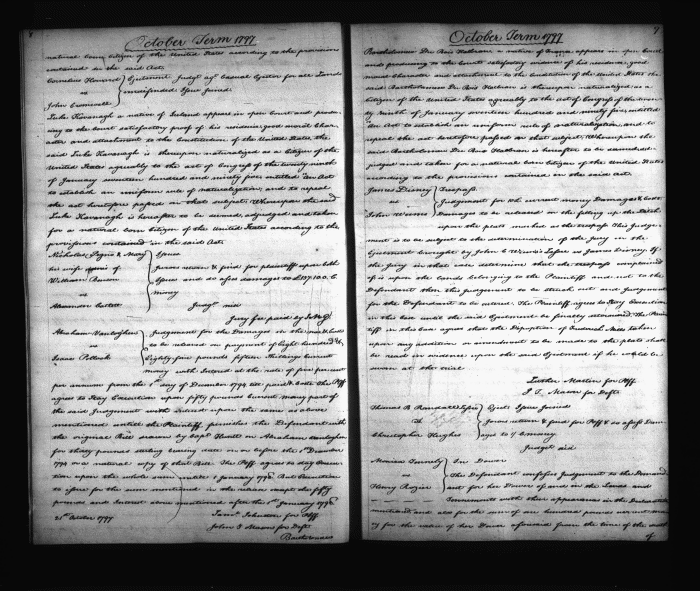 8
October Term 1797.
natural born citizen of the United States according to the provisions
contained in the said Act.
Cornelius Howard } Ejectment Judgt. agt. Casual Ejector for all Lands
vs } undefended Issue joined.
John Cromwell
Luke Kavanagh a native of Ireland appeared in open Court and produ-
cing to the Court satisfactory proof of his residence, good moral char-
acter and attachment to the Constitution of the United States, the
said Luke Kavanagh is thereupon naturalized as a Citizen of the
United States agreeably to the act of Congress of the twenty ninth
of January seventeen hundred and ninety five entitled "An Act
to establish an uniform rule of naturalization, and to repeal
the act heretofore passed on that subject. Whereupon the said
Luke Kavanagh is hereafter to be deemed, adjudged and taken
for a natural born Citizen of the United States according to the
provisions contained in the said Act.
Nicholas & Mary } Issue
his wife of } Jurors return & find for plaintiff upon both
William } Issues and do assess damages to
vs } money
Alexander } Judgt. nisi
Jury fee paid by
Abraham } Judgment for the Damages in the and Costs
vs } to be released on payment of Eight hundred &
Isaac Pollock } Eighty five pounds fifteen shillings current
money with Interest at the rate of six percent
per annum from the 1st day of December 1794 till paid & Costs. The Plff
agrees to stay Execution upon fifty pounds current money part of
the said Judgment with interest upon the same as above
mentioned until the Plaintiff, furnishes the Defendant with
the original Bill drawn by Capt. on Abraham
for thirty pounds sterling bearing date on or before the 1st December
1794 or a notarial copy of that Bill. The Plff agrees to stay Execu-
tion upon the whole sum until 1 January 1798. But Execution
to issue for the sum mentioned in the except the fifty
pounds and Interest above mentioned after the 1st January 1798
21st October 1797 Saml. Johnston for Plff
John T Mason for Deft
Bartholomew
9
October Term 1797.
Bartholomew Du Bois a native of appears in open Court
and producing to the Court satisfactory evidence of his residence, good
moral character and attachment to the Constitution of the United States the
said Bartholomew Du Bois is thereupon naturalized as a
Citizen of the United States agreeably to the act of Congress of the twen-
ty Ninth of January seventeen hundred and ninety five, entitled
"An Act to establish an uniform rule of naturalization, and to
repeal the act heretofore passed on that subject. Whereupon the
said Bartholomew Du Bois is hereafter to be deemed ad-
judged and taken for a natural born Citizen of the United States
according to the provisions contained in the said act.
James Disney } Trespass
vs } Judgement for current money Damages & Costs.
John Weems } Damages to be released on the filling up the Ditch
upon the plats marked as the trespass. This Judge-
ment is to be subject to the determination of the Jury in the
Ejectment brought by John Weems' Lessee vs James Disney. If
the Jury in that case determine that the trespass complained
of is upon the lands belonging to the Plaintiff and not to the
Defendant then this judgement to be struck out and Judgement
for the Defendant to be entered. The Plaintiff agrees to stay Execution
in this case until the said Ejectment be finally determined. The Plain-
tiff in this case agrees that the Deposition of taken
upon any addition or amendment to be made to the plats shall
be read in evidence upon the said Ejectment if he could be
sworn at the trial.
Luther Martin for Plff
J T Mason for Deft
Thomas B Randall's Lessee } Eject. Issue Joined
vs } Jurors return & find for Plff & assess Dam-
Christopher Hughes } ages to money
Judgt. nisi
In Dower
vs } The Defendant confesses Judgement to the Demand-
Henry Rozier } ant for her Dower of and in the Lands and
Tenements with their appurtenances in the Declaration
mentioned, and also for the sum of one hundred pounds current mo-
ney for the value of her Dower aforesaid from the time of the
of